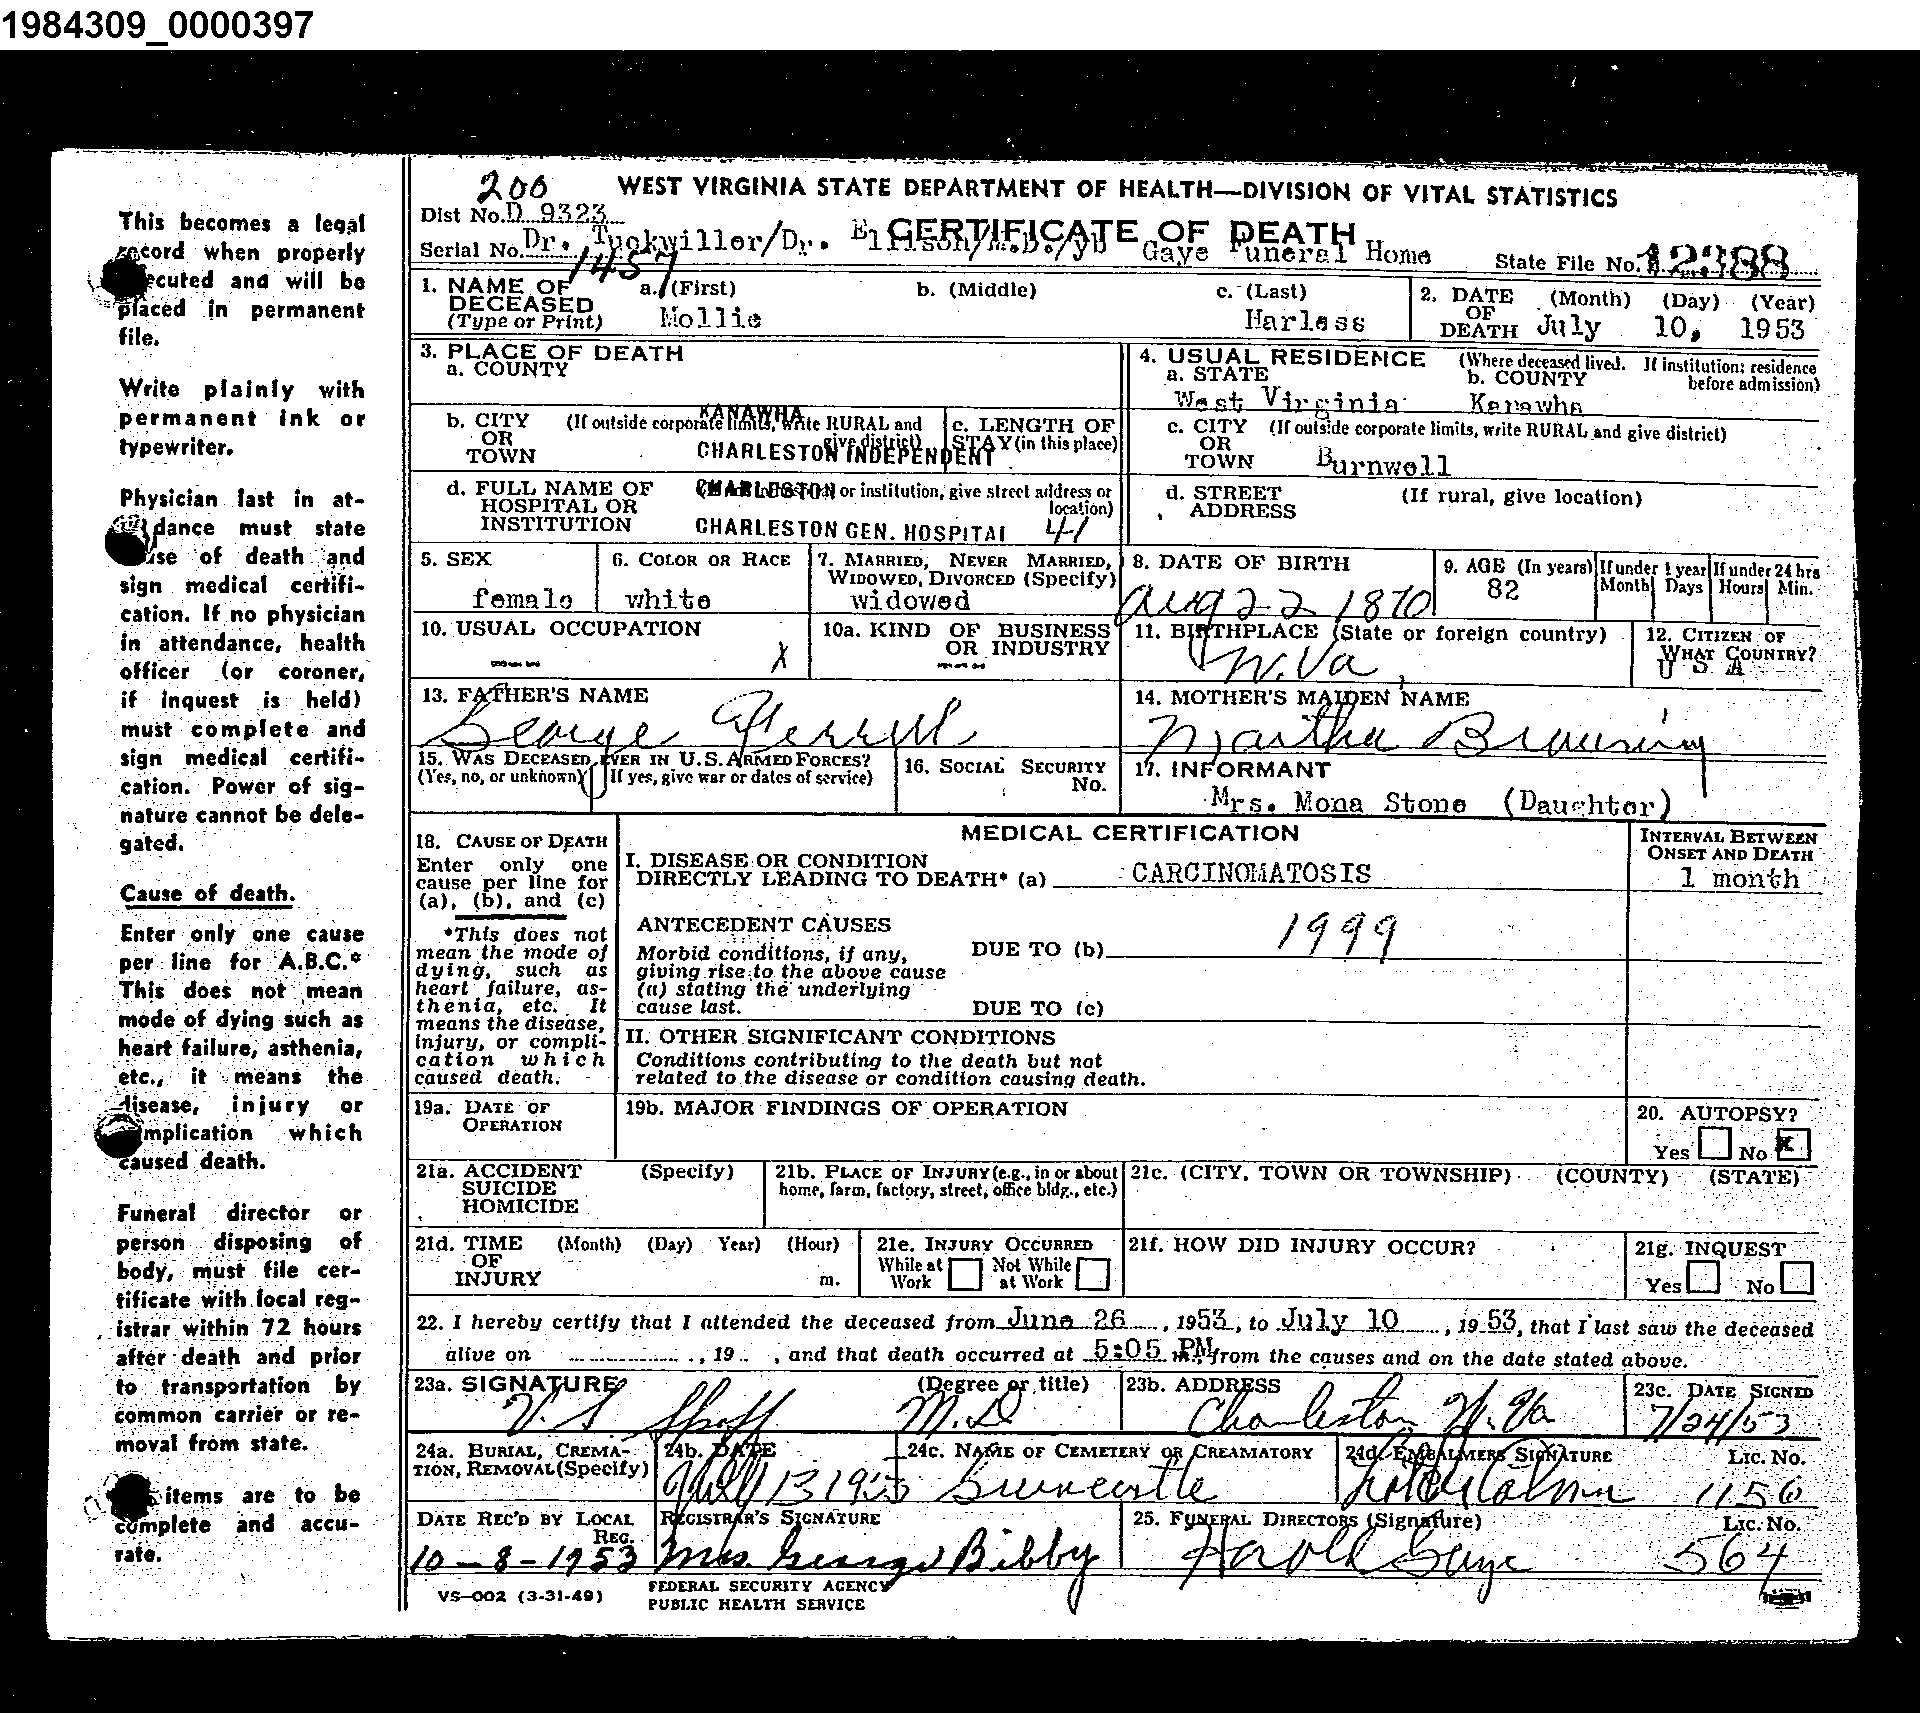 1984309_0000397
This becomes a legal
record when properly
executed and will be
placed in permanent
file.
Write plainly with
permanent ink or
typewriter.
Physician last in at-
dance must state
use of death and
sign medical certifi-
cation. If no physician
in attendance, health
officer (or coroner,
if inquest is held)
must complete and
sign medical certifi-
cation. Power of sig-
nature cannot be dele-
gated.
Cause of death.
Enter only one cause
per line for A.B.C.*
This does not mean
mode of dying such as
heart failure, asthenia,
etc., it means the
disease, injury or
mplication which
caused death.
Funeral director or
person disposing of
body, must file cer-
tificate with local reg-
istrar within 72 hours
after death and prior
to transportation by
common carrier or re-
moval from state.
items are to be
complete and accu-
rate.
200 WEST VIRGINIA STATE DEPARTMENT OF HEALTH—DIVISION OF VITAL STATISTICS
Dist No. D 9323 CERTIFICATE OF DEATH
Serial No. Dr. Tuckwiller/Dr. Ellison/m.D./yb Gaye Funeral Home State File No. 12388
1457
1. NAME OF DECEASED (Type or Print) a. (First) Mollie b. (Middle) c. (Last) Harless
2. DATE OF DEATH (Month) (Day) (Year) July 10, 1953
3. PLACE OF DEATH
a. COUNTY KANAWHA
b. CITY OR TOWN (If outside corporate limits, write RURAL and give district) CHARLESTON INDEPENDENT
CHARLESTON
c. LENGTH OF STAY (in this place)
d. FULL NAME OF HOSPITAL OR INSTITUTION or institution, give street address or location)
CHARLESTON GEN. HOSPITAL 41
4. USUAL RESIDENCE (Where deceased lived. If institution: residence before admission)
a. STATE West Virginia b. COUNTY Kanawha
c. CITY OR TOWN (If outside corporate limits, write RURAL and give district) Burnwell
d. STREET ADDRESS (If rural, give location)
5. SEX female
6. COLOR OR RACE white
7. MARRIED, NEVER MARRIED, WIDOWED, DIVORCED (Specify) widowed
8. DATE OF BIRTH Aug 22 1870
9. AGE (In years) 82 If under 1 year Month Days If under 24 hrs Hours Min.
10. USUAL OCCUPATION ---- X
10a. KIND OF BUSINESS OR INDUSTRY ----
11. BIRTHPLACE (State or foreign country) W. Va.
12. CITIZEN OF WHAT COUNTRY? U S A
13. FATHER'S NAME George Ferrell
14. MOTHER'S MAIDEN NAME Martha Browning
15. WAS DECEASED EVER IN U.S. ARMED FORCES? (Yes, no, or unknown) (If yes, give war or dates of service)
16. SOCIAL SECURITY No.
17. INFORMANT Mrs. Mona Stone (Daughter)
18. CAUSE OF DEATH
Enter only one cause per line for (a), (b), and (c)
*This does not mean the mode of dying, such as heart failure, asthenia, etc. It means the disease, injury, or complication which caused death.
MEDICAL CERTIFICATION
INTERVAL BETWEEN ONSET AND DEATH
I. DISEASE OR CONDITION DIRECTLY LEADING TO DEATH* (a) CARCINOMATOSIS 1 month
ANTECEDENT CAUSES
Morbid conditions, if any, giving rise to the above cause (a) stating the underlying cause last.
DUE TO (b) 1999
DUE TO (c)
II. OTHER SIGNIFICANT CONDITIONS
Conditions contributing to the death but not
related to the disease or condition causing death.
19a. DATE OF OPERATION
19b. MAJOR FINDINGS OF OPERATION
20. AUTOPSY? Yes No X
21a. ACCIDENT SUICIDE HOMICIDE (Specify)
21b. PLACE OF INJURY (e.g., in or about home, farm, factory, street, office bldg., etc.)
21c. (CITY, TOWN OR TOWNSHIP) (COUNTY) (STATE)
21d. TIME OF INJURY (Month) (Day) Year) (Hour) m.
21e. INJURY OCCURRED While at Work Not While at Work
21f. HOW DID INJURY OCCUR?
21g. INQUEST Yes No
22. I hereby certify that I attended the deceased from June 26, 1953, to July 10, 1953, that I last saw the deceased
alive on , 19 , and that death occurred at 5:05 PM m., from the causes and on the date stated above.
23a. SIGNATURE (Degree or title) M.D
23b. ADDRESS Charleston W. Va
23c. DATE SIGNED 7/24/53
24a. BURIAL, CREMATION, REMOVAL (Specify)
24b. DATE July 13 1953
24c. NAME OF CEMETERY OR CREAMATORY
24d. EMBALMERS SIGNATURE Lic. No. 1156
DATE REC'D BY LOCAL REG. 10-8-1953
REGISTRAR'S SIGNATURE Mrs. George Bibby
25. FUNERAL DIRECTORS (Signature) Harold Gaye Lic. No. 564
VS—002 (3-31-49)
FEDERAL SECURITY AGENCY
PUBLIC HEALTH SERVICE